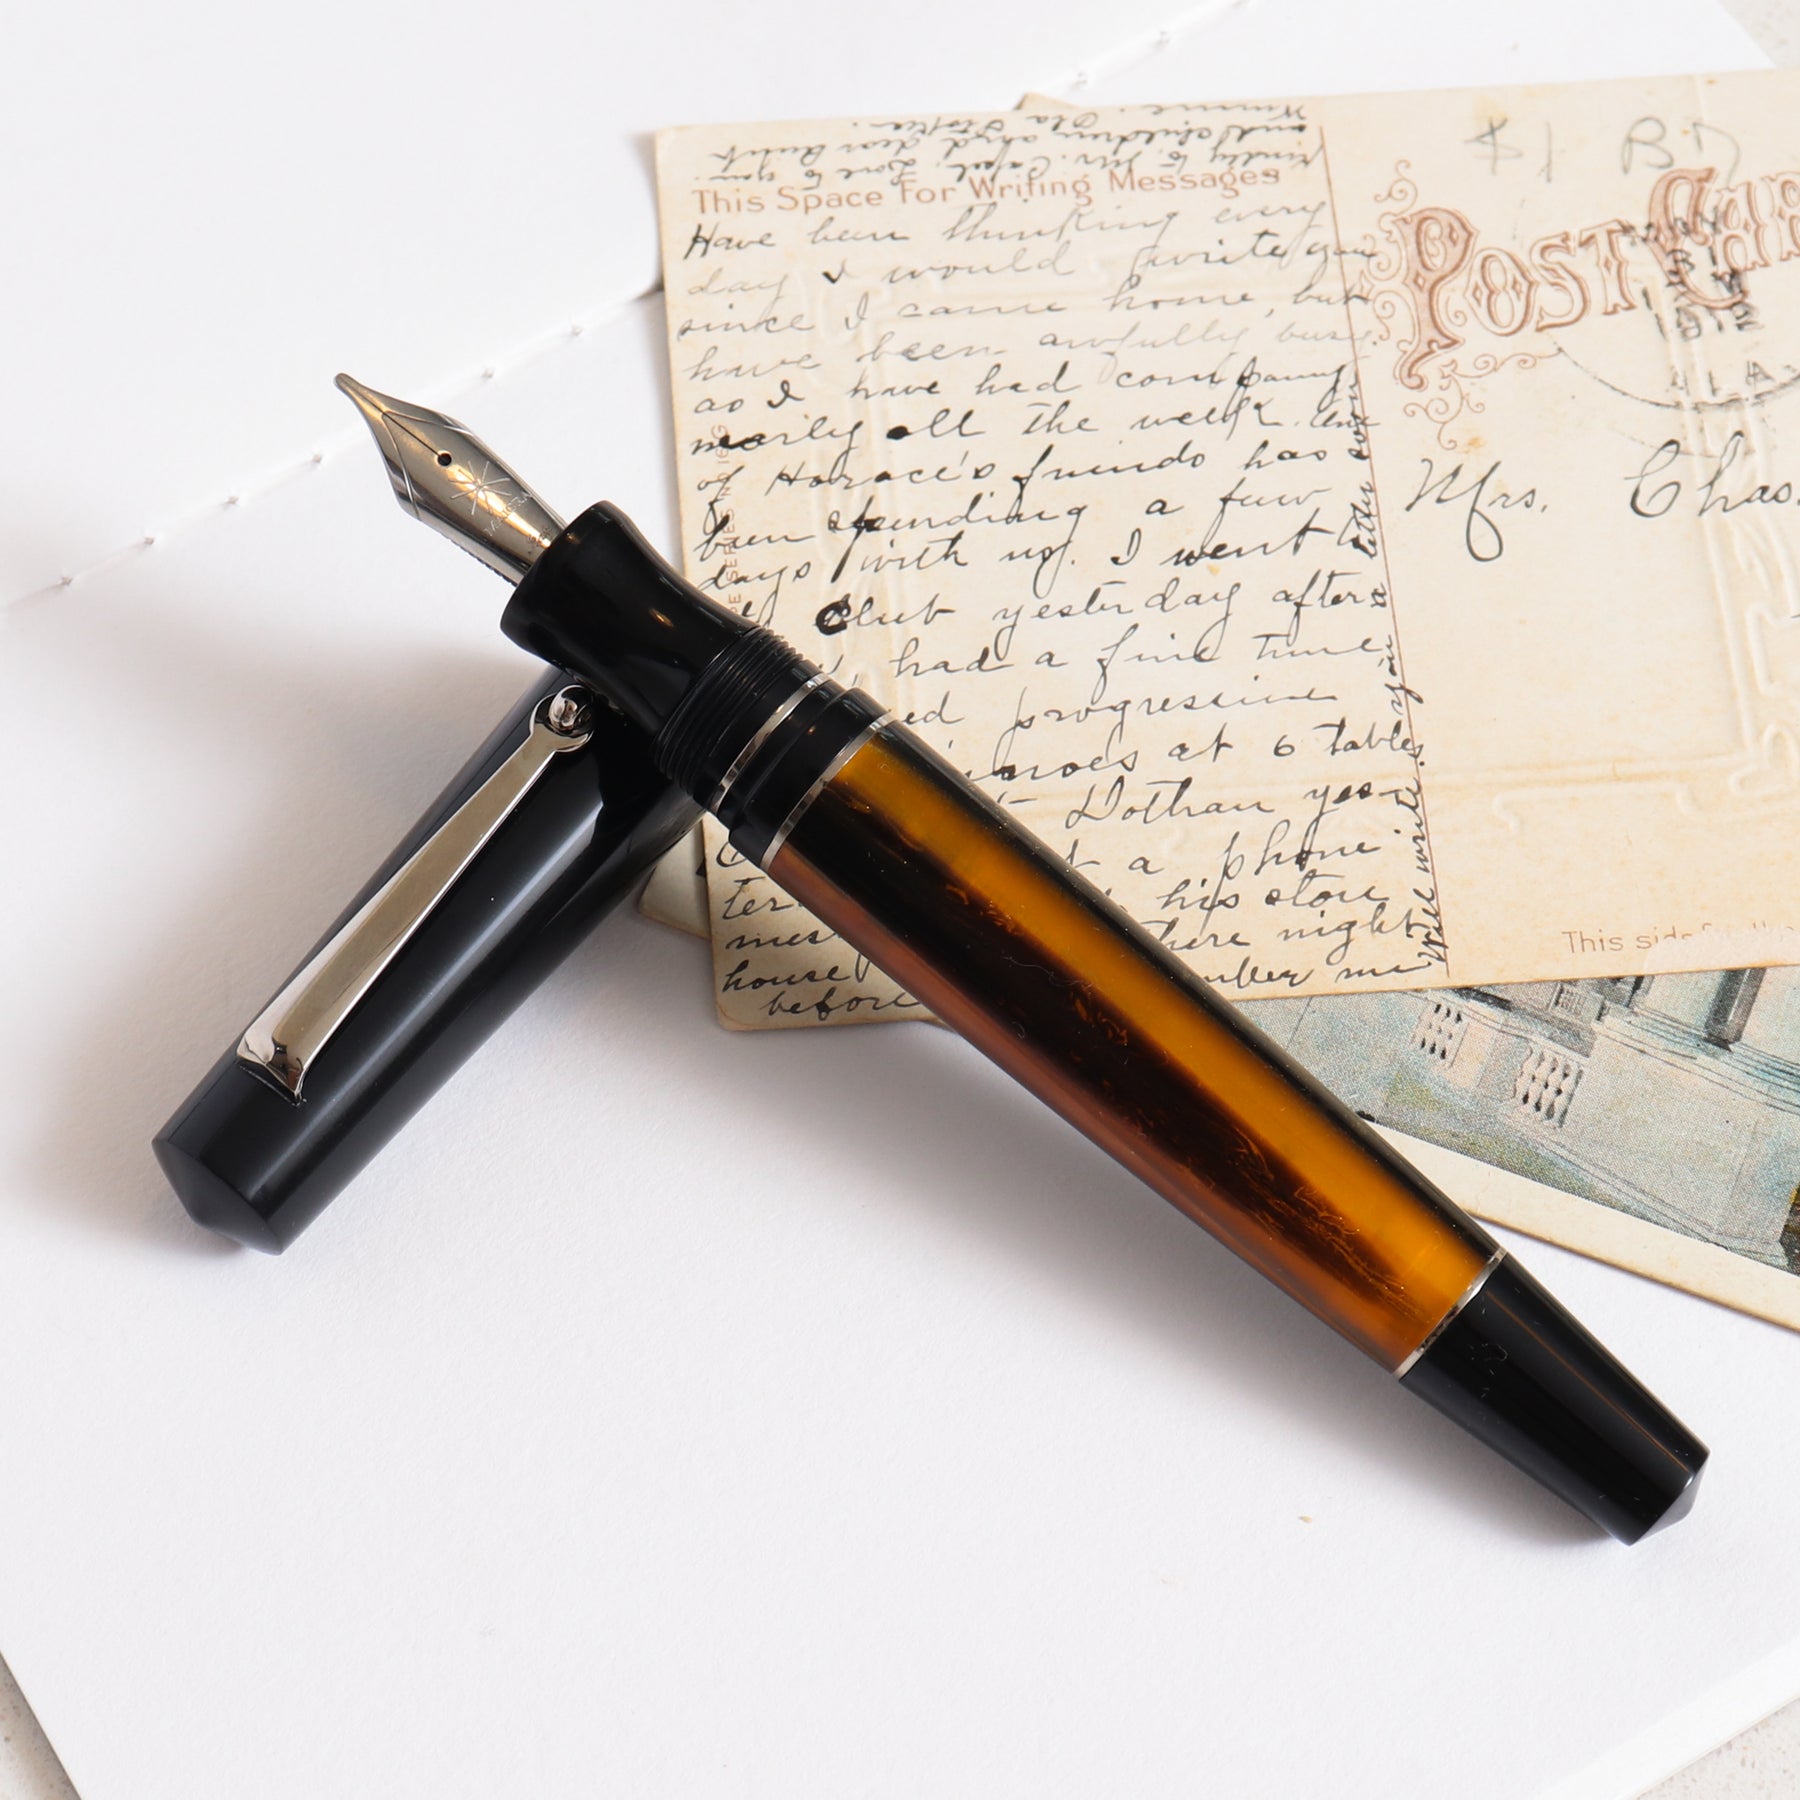 kindly to Mr. Capel, Love to you
and children and dear Aunt
Winnie. Ola
This Space For Writing Messages
Have been thinking every
day I would write you
since I came home, but
have been awfully busy
as I have had company
nearly all the week. One
of Horace's friends has
been spending a few
days with us. I went to
Club yesterday after
had a fine time
ed progressive
inoes at 6 tables
Dothan yes-
t a phone
ter his store
mes there night
house mber me
before
Will write you a letter soon
$1
POST CAR
Mrs. Chas.
This side for the